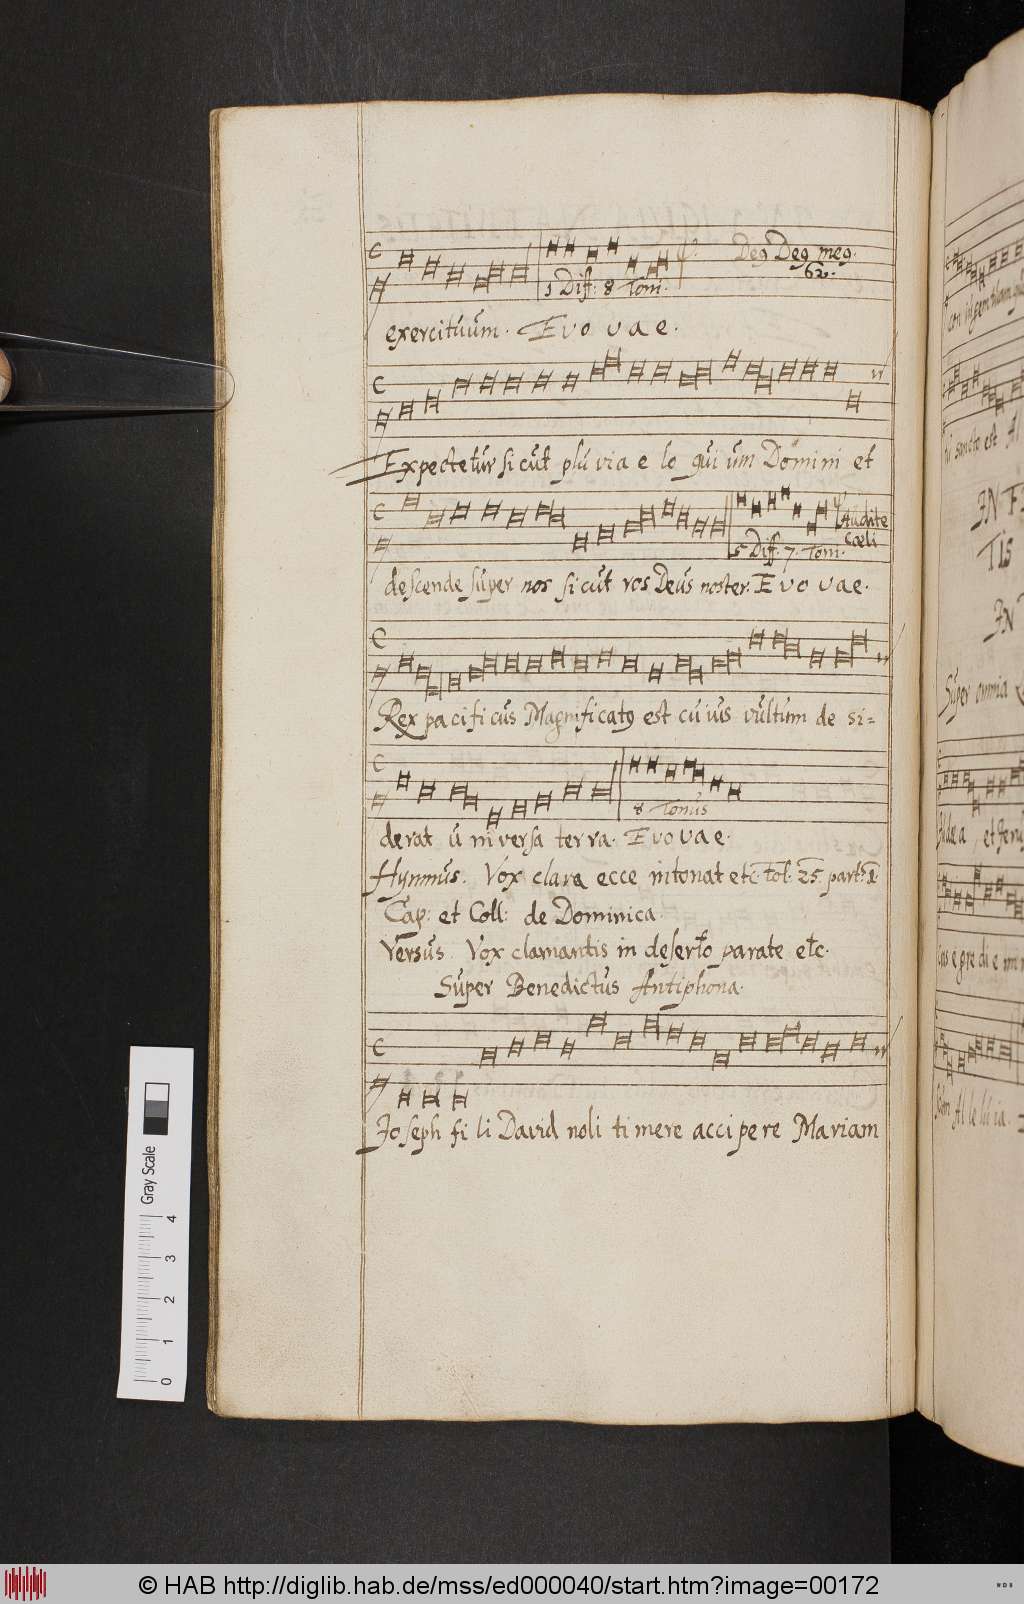 Deg Deg meg.
62.
1 Diff: 8 Tom.
exercituum. Evovae.
Expectetur sicut pluvia eloquium Domini et
Audite
Cæli
5 Diff: 7. Tom.
descende super nos sicut ros Deus noster. Evovae.
Rex pacificus Magnificatg est cuius vultum desi=
8 Tonus
derat universa terra. Evovae.
Hymnus. Vox clara ecce intonat etc. fol. 25. part. 1.
Cap: et Coll: de Dominica.
Versus. Vox clamantis in deserto parate etc.
Super Benedictus Antiphona.
Joseph fili David noli timere accipere Mariam
Super omnia
et
Al le lu ia.
Gray Scale
4
3
2
1
0
© HAB http://diglib.hab.de/mss/ed000040/start.htm?image=00172